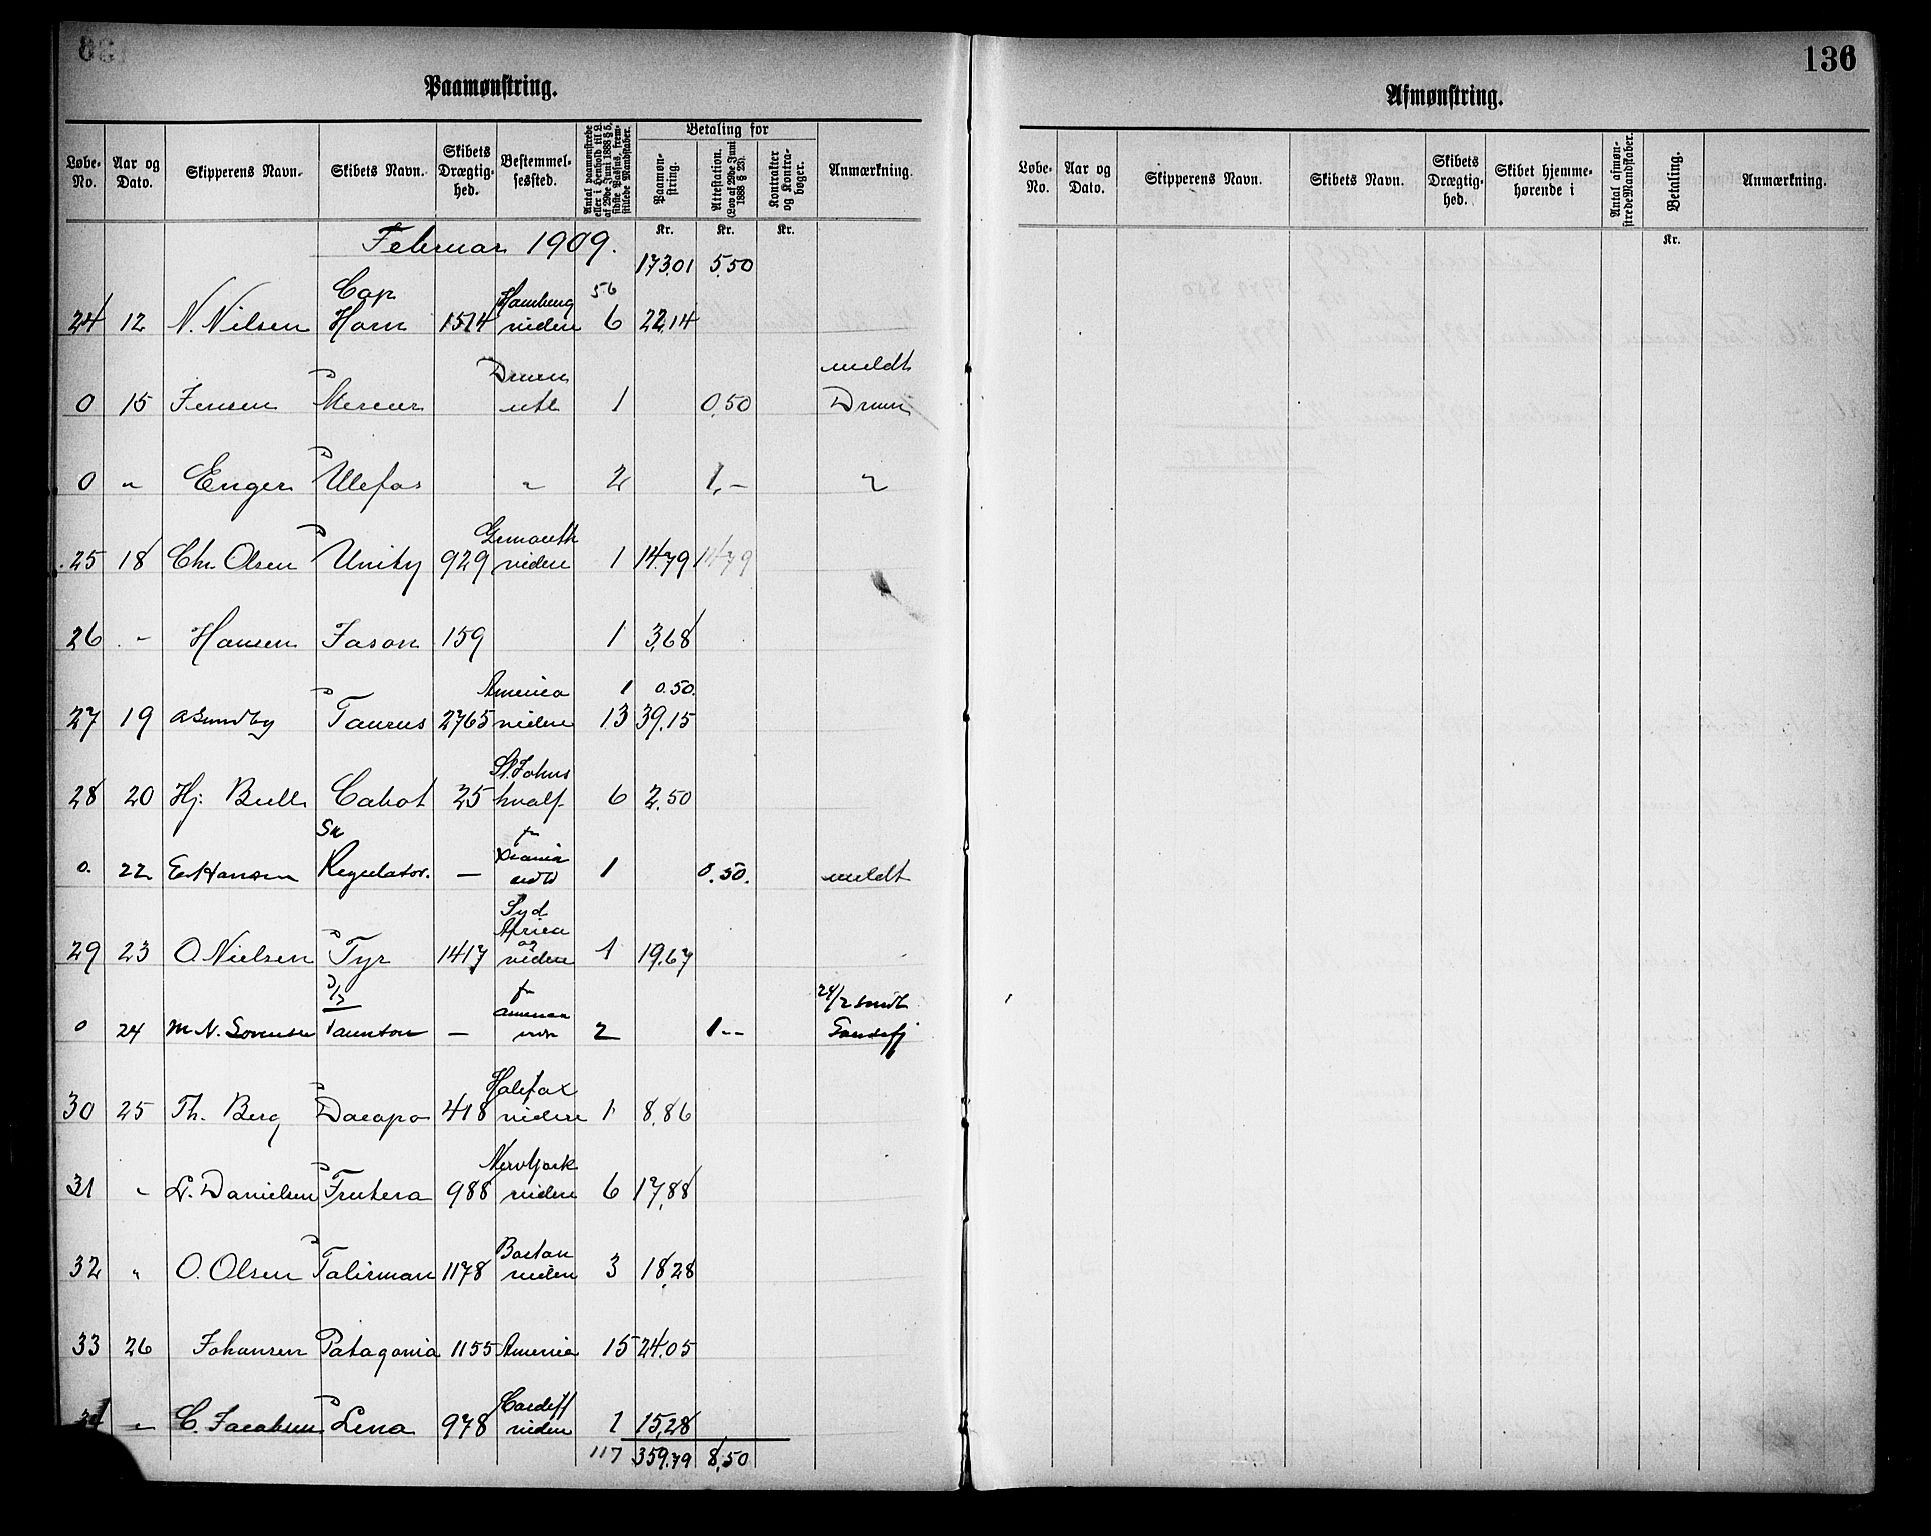 Paamønstring.
Løbe-No. Aar og Dato. Skipperens Navn. Skibets Navn. Skibets Drægtighed. Bestemmelsessted. Antal paamønstrede eller i Henhold til L. af 29de Juni 1888 § 5, sidste Passus, fremstillede Mandskaber. Betaling for Paamønstring. Attestation. (Lov af 29de Juni 1888 § 23). Kontrakter og Kontrabøger. Anmærkning.
Kr. Kr. Kr.
Februar 1909.
173.01 5.50
Cap Hamburg 56
24 12 N. Nilsen Horn 1514 videre 6 22,14
meldt
0 15 Jensen Mercur utl 1 0,50
0 " Enger Ulefos " 2 1,- "
25 18 Chr. Olsen Unity 929 videre 1 14.79 14 79
26 " Hansen Jason 159 1 3,68
America 1 0.50.
27 19 A Sundby Taurus 2765 videre 13 39.15
St. Johns
28 20 Hj. Bull Cabot 25 hvalf. 6 2.50
Sk
0. 22 Regulator. — 1 0.50. meldt
Syd Africa og
29 23 O Nielsen Tyr 1417 videre 1 19.67
D/S
0 24 M N. Sorensen Taunton — 2 1-- Sandefj
Halifax
30 25 Th. Berg Dacapo 418 videre 1 8,86
New York
31 " L. Danielsen Frutera 988 videre 6 17,88
Boston
32 " O. Olsen Talisman 1178 videre 3 18,28
33 26 Johansen Patagonia 1155 America 15 24.05
Cardiff
34 " C. Jacobsen Lena 978 videre 1 15,28
117 359.79 8,50
136
Afmønstring.
Løbe-No. Aar og Dato. Skipperens Navn. Skibets Navn. Skibets Drægtighed. Skibet hjemmehørende i Antal afmønstrede Mandskaber. Betaling. Anmærkning.
Kr.